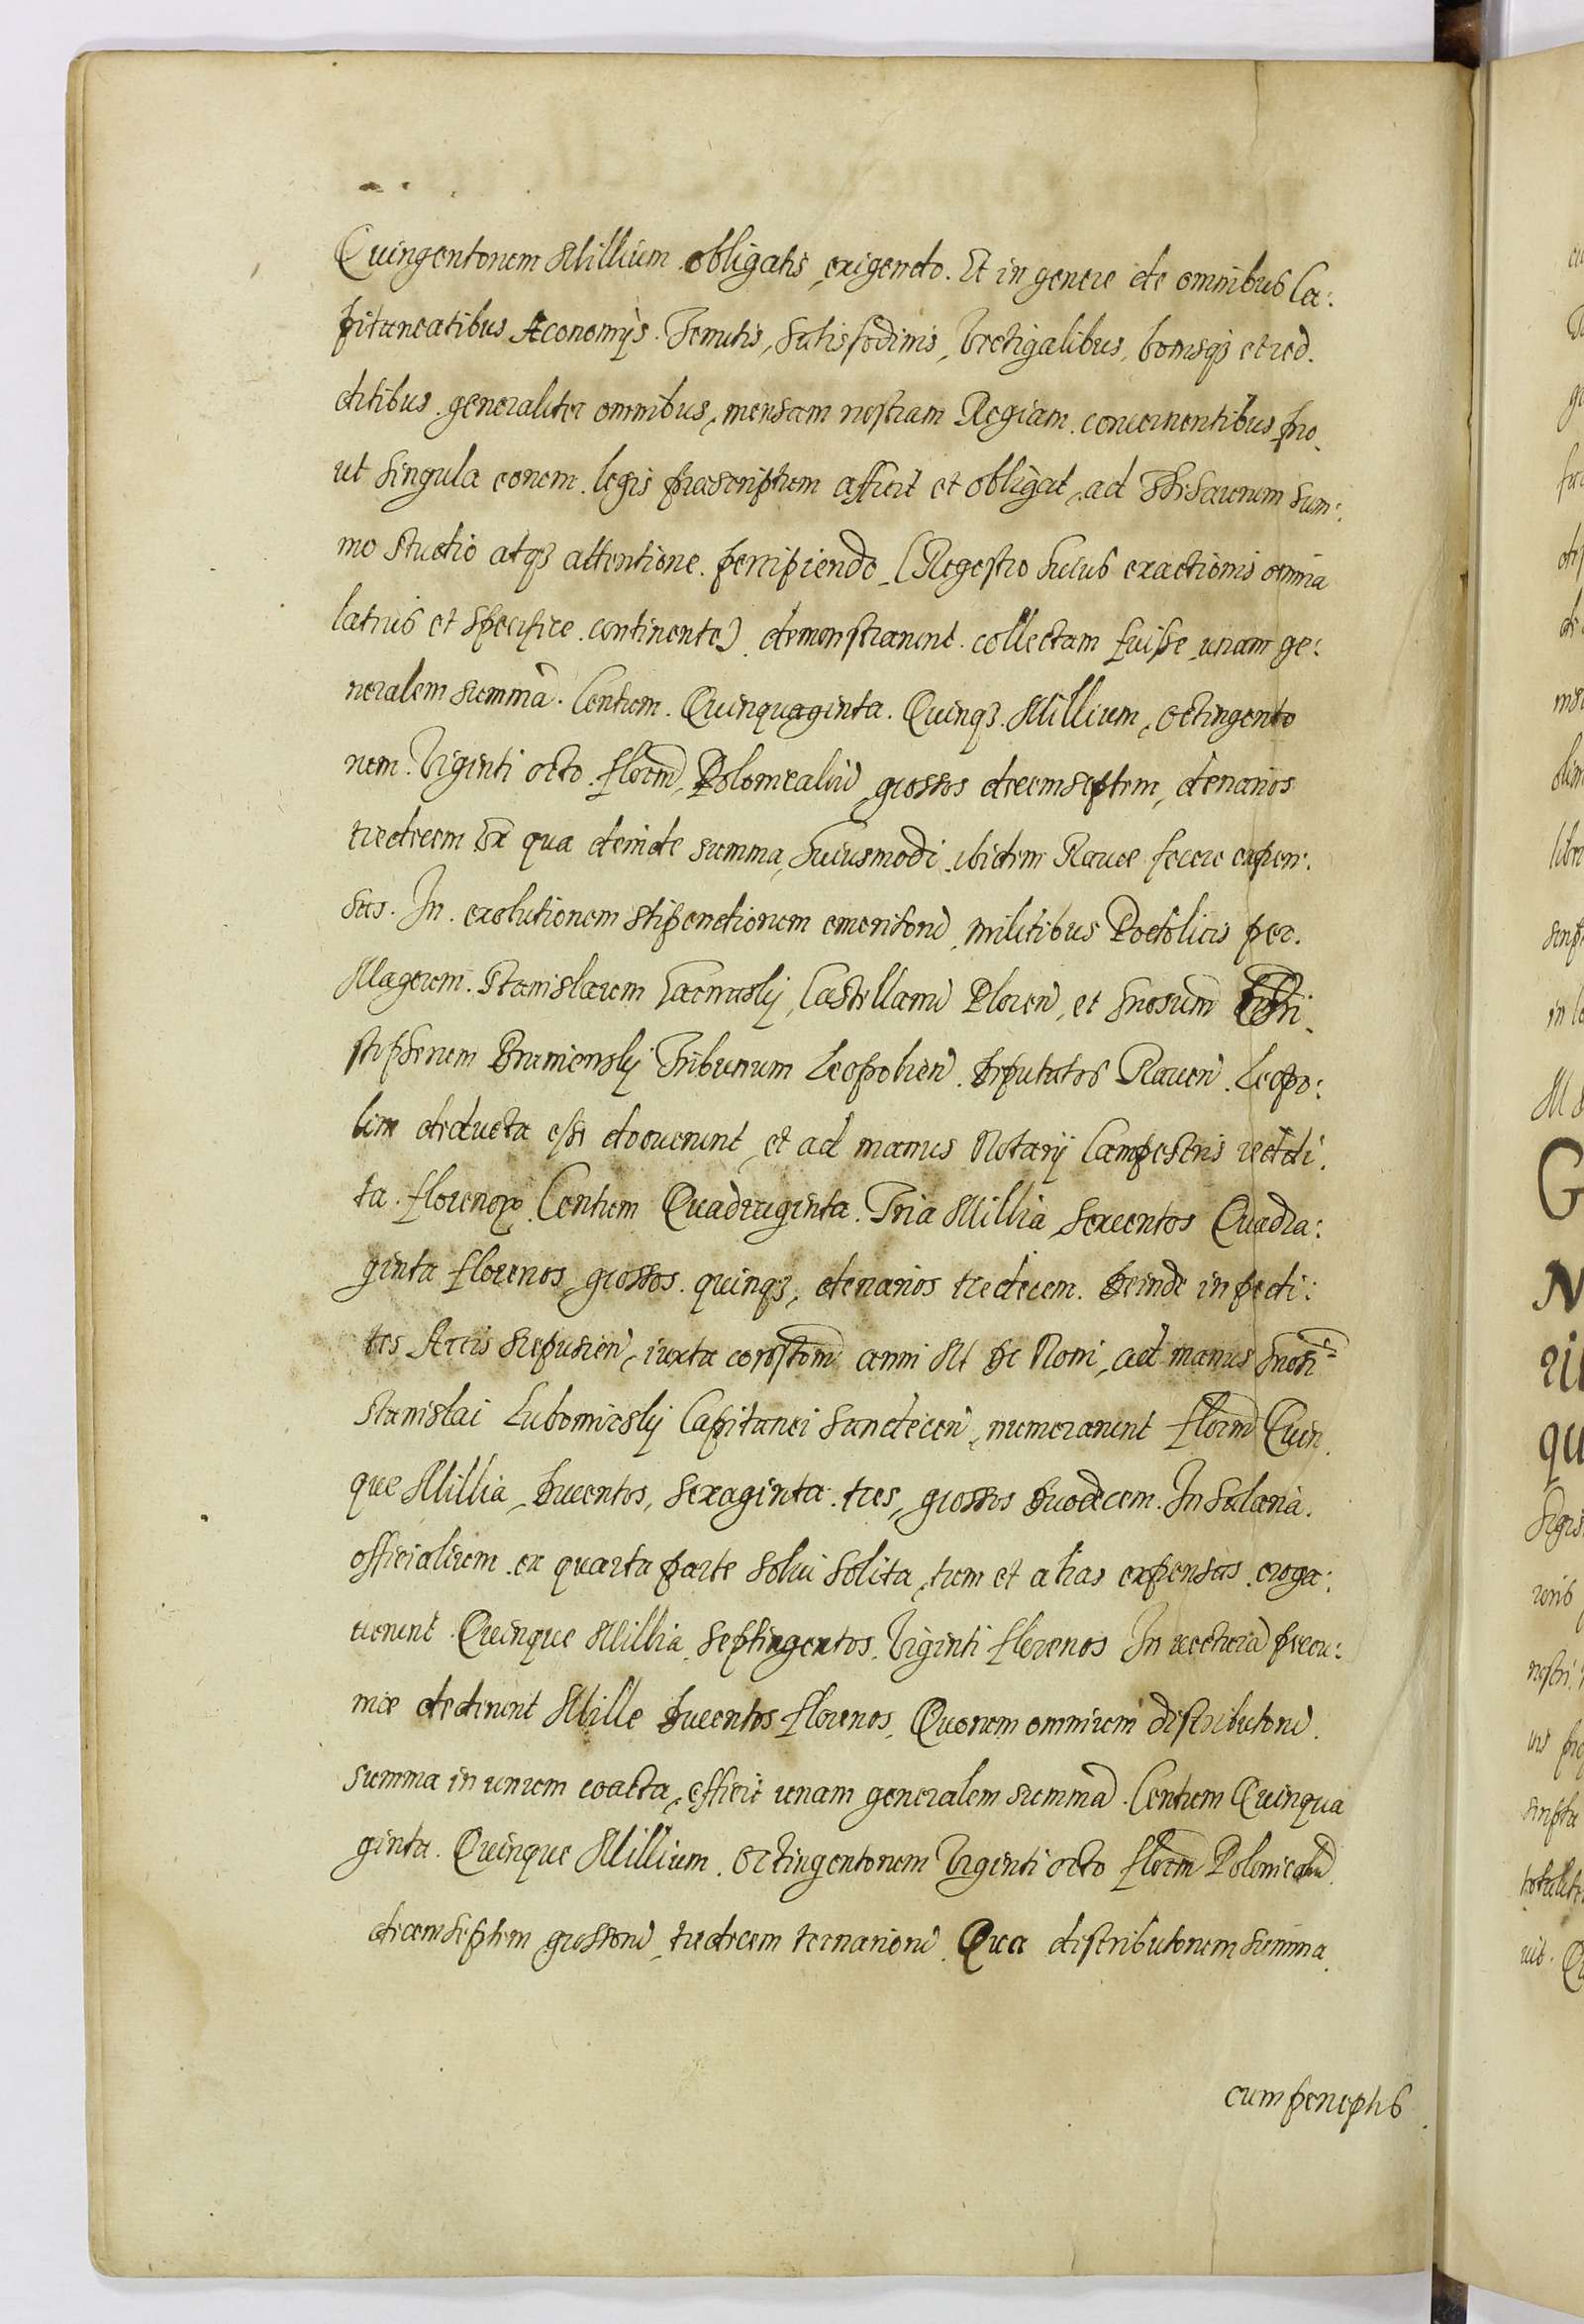 Quingentorum Millium obligatis, exigendo. Et in genere de omnibus Ca:
pitaneatibus Æconomijs. Tenutis, Salisfodinis, Vectigalibus, bonisq3 et red.
ditibus generaliter omnibus, mensam nostram Regiam concernentibus pro,
ut singula eorum legis præscriptum afficit et obligat, ad Thesaurum sum:
mo studio atq3 attentione percipiendo (Regestro huius exactionis omnia
latius et specifice continente) demonstrarunt collectam fuisse unam ge:
neralem summã. Centum. Quinquaginta. Quinq3. Millium, octingento
rum Viginti octo florm̃, Polonicaliũ, grossos decemseptem, denarios
tredecem Ex qua deinde summa, huiusmodi ibidem Rauæ fecere expen:
sas. In exolutionem stipendiorum emeritorũ militibus Podolicis per.
Magcum. Stanislaum Garnisky, Castellanũ Plocen̄, et Gnosum̃ Chri
stopherum Bramensky Tribunum Leopolien̄. Deputatos Rauen̄. Leopo:
lim deducta esse docuerunt, et ad manus Notarij Campestris reddi.
ta. florenorꝝ Centum Quadraginta. Tria Millia Sexcentos Quadra:
ginta florenos, grossos quinq3, denarios tredecem. Deinde in pedi:
tes Arcis Scepusien̄, iuxta constom̃ anni M DC Noni, ad manus Gnosi
Stanislai Lubomirsky Capitanei Sandecen̄, numerarunt florm̃ Quin
que Millia, Ducentos, sexaginta tres, grossos Duodecem. In Salaria.
officialium ex quarta parte solui solita, tum et alias expensas eroga:
uerunt Quinque Millia, Septingentos Viginti florenos In vecturã pecu:
niæ dederunt Mille Ducentos florenos, Quorum omnium distributorũ.
summa in unum coacta, efficit unam generalem summã. Centum Quinqua
ginta. Quinque Millium. Octingentorum Viginti octo florm̃ Polonicaliũ
decemseptem grossorũ, tredecem ternariorũ Quæ distributorum summa
cum perceptis